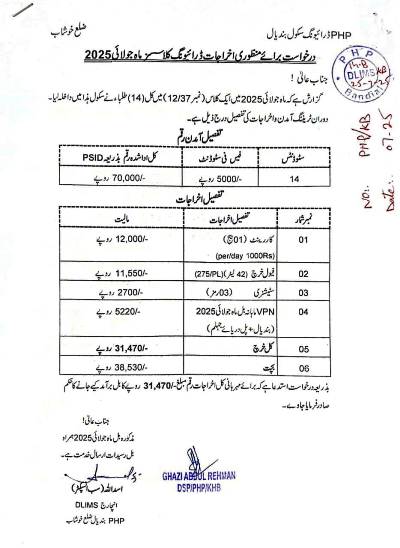 PHP ڈرائیونگ سکول بندیال
ضلع خوشاب
درخواست برائے منظوری اخراجات ڈرائیونگ کلاسسز ماہ جولائی 2025
جناب عالی !
گزارش ہے کہ ماہ جولائی 2025 میں ایک کلاس (نمبر 12/37) میں کل (14) طلباء نے سکول ہذا میں داخلہ لیا۔
دوران ٹریننگ آمدن و اخراجات کی تفصیل درج ذیل ہے۔
تفصیل آمدن رقم
سٹوڈنٹس فیس فی سٹوڈنٹ کل اداشدہ رقم بذریعہ PSID
14 5000/- روپے 70,000/- روپے
تفصیل اخراجات
نمبر شمار تفصیل اخراجات مالیت
01 کار رینٹ (01 بیج) (per/day 1000Rs) 12,000/- روپے
02 فیول خرچ (42 لیٹر) (275/PL) 11,550/- روپے
03 سٹیشنری (03 رمز) 2700/- روپے
04 VPN ماہانہ بل ماہ جولائی 2025 (بندیال + پل دریائے جہلم) 5220/- روپے
05 کل خرچ 31,470/- روپے
06 بچت 38,530/- روپے
بذریعہ درخواست استدعا ہے کہ برائے مہربانی کل اخراجات رقم مبلغ -/31,470 روپے کا بل برآمد کیے جانے کا حکم
صادر فرمایا جاوے۔
جناب عالی!
مذکورہ بل ماہ جولائی 2025 ہمراہ
بل رسیدات ارسال خدمت ہے۔
اسداللہ (سب انسپکٹر)
انچارج DLIMS
PHP بندیال ضلع خوشاب
GHAZI ABDUL REHMAN
DSP/PHP/KHB
PHP
DLIMS
25-7-25
Bandial
No: PHP/KB
Date: 07-25